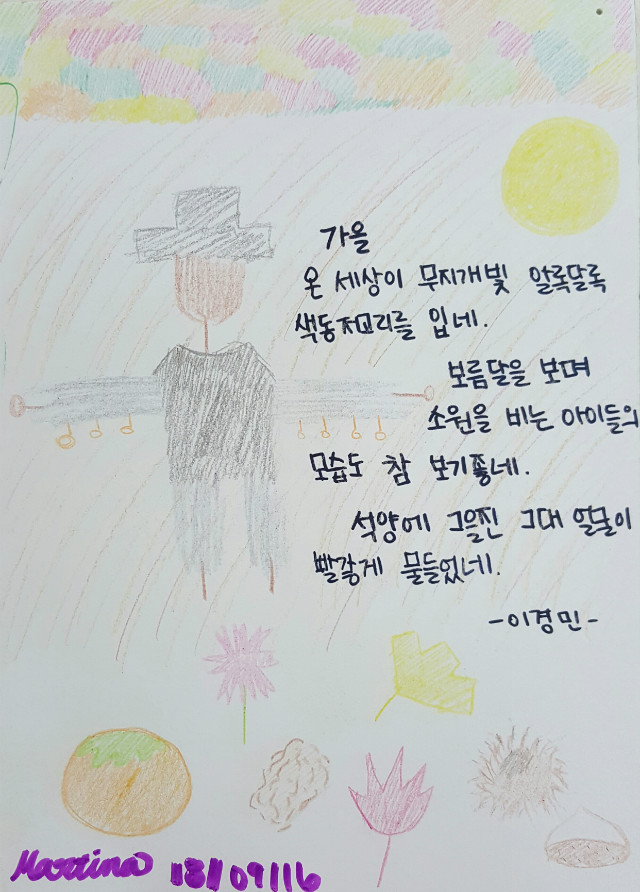 가을
온 세상이 무지개빛 알록달록
색동저고리를 입네.
보름달을 보며
소원을 비는 아이들의
모습도 참 보기좋네.
석양에 그을진 그대 얼굴이
빨갛게 물들었네.
-이경민-
Martina 18/09/16